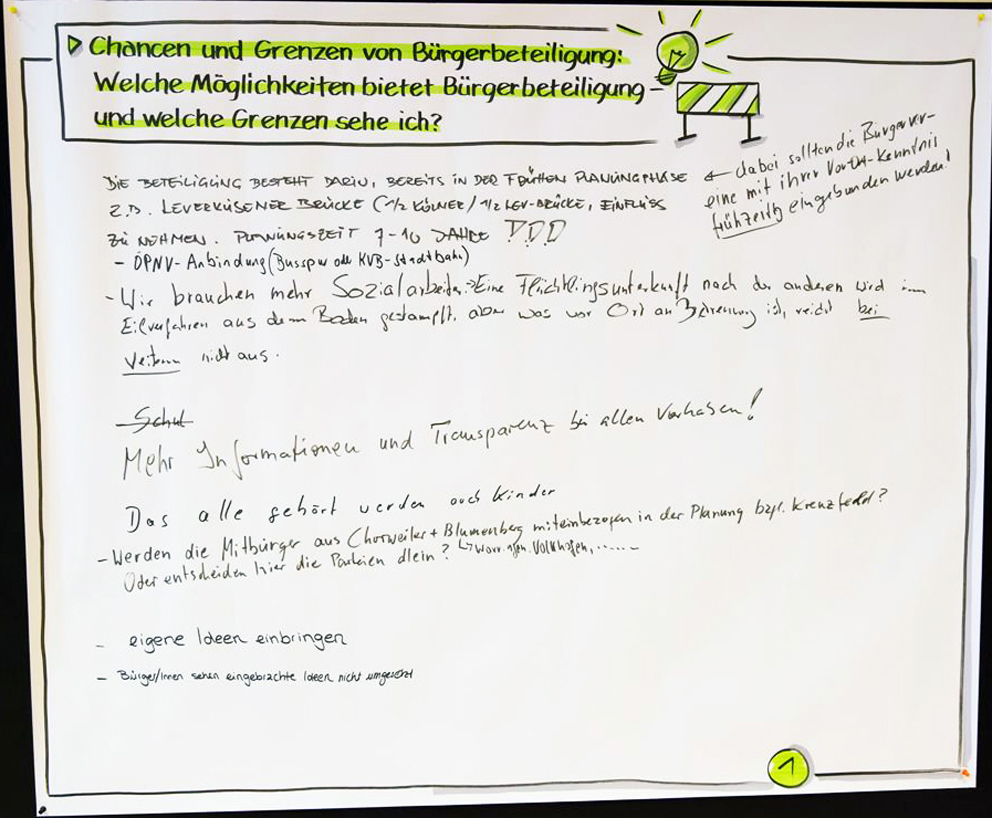 Chancen und Grenzen von Bürgerbeteiligung:
Welche Möglichkeiten bietet Bürgerbeteiligung –
und welche Grenzen sehe ich?
DIE BETEILIGUNG BESTEHT DARIN, BEREITS IN DER FRÜHEN PLANUNGSPHASE
Z.B. LEVERKUSENER BRÜCKE (1/2 KÖLNER / 1/2 LEV-BRÜCKE, EINFLUSS
ZU NEHMEN. PLANUNGSZEIT 7-10 JAHRE !!!
← dabei sollten die Bürgerver-
eine mit ihrer Vor-Ort-Kenntnis
frühzeitig eingebunden werden!
- ÖPNV-Anbindung (Busspur oder KVB-Stadtbahn)
- Wir brauchen mehr Sozialarbeiter. Eine Flüchtlingsunterkunft nach der anderen wird im
Eilverfahren aus dem Boden gestampft, aber was vor Ort an Betreuung ist, reicht bei
Weitem nicht aus.
Schul
Mehr Informationen und Transparenz bei allen Vorhaben!
Das alle gehört werden auch Kinder
- Werden die Mitbürger aus Chorweiler + Blumenberg miteinbezogen in der Planung bzgl. Kreuzfeld?
↳ Worringen, Volkhoven, ......
Oder entscheiden hier die Parteien allein?
- eigene Ideen einbringen
- Bürger/innen sehen eingebrachte Ideen nicht umgesetzt
1